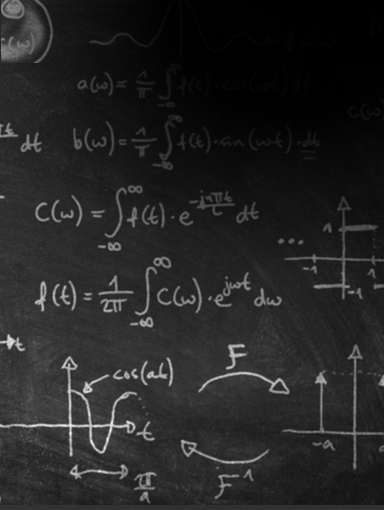 (ω)
a(ω) = 1/π ∫_{-∞}^{∞} f(t)·cos(ωt) dt
dt b(ω) = 1/π ∫_{-∞}^{∞} f(t)·sin(ωt)·dt
C(ω) = ∫_{-∞}^{∞} f(t)·e^{-jnπt/L} dt
1
... -1 1
-1
f(t) = 1/2π ∫_{-∞}^{∞} C(ω)·e^{jωt} dω
t
cos(at) F
t -a
π/a F^{-1}